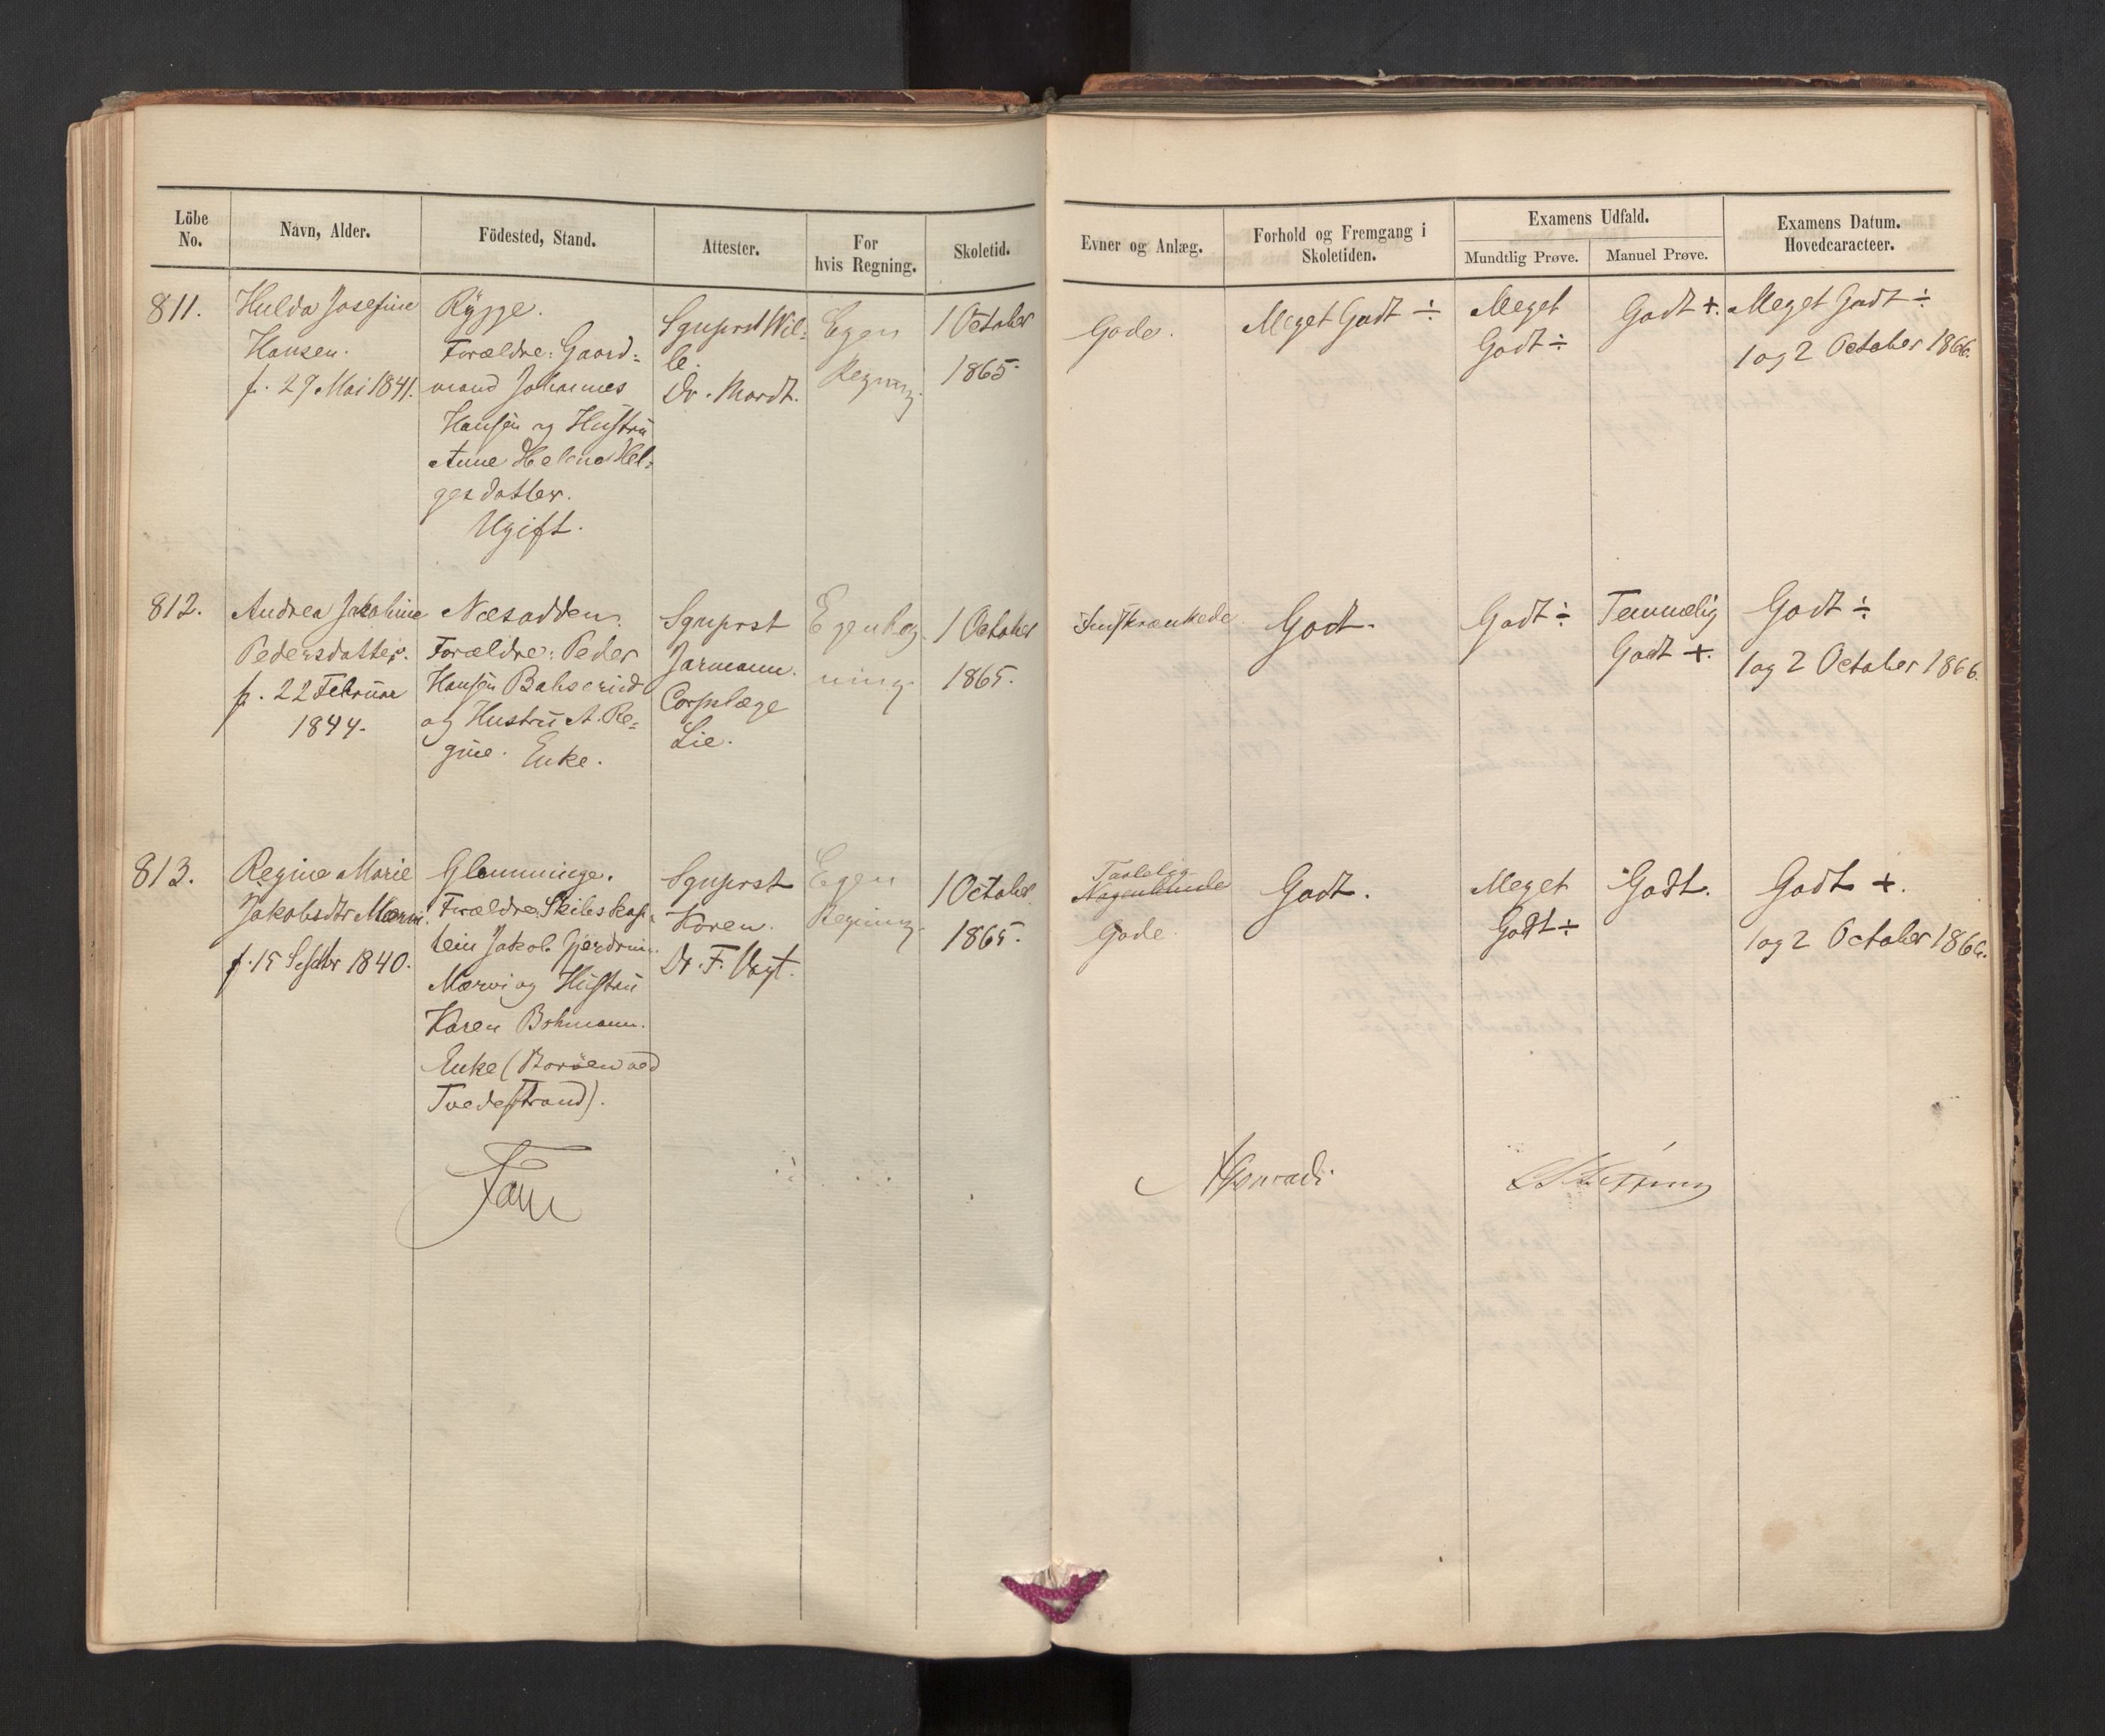 Löbe No.
Navn, Alder.
Födested, Stand.
Attester.
For hvis Regning.
Skoletid.
Evner og Anlæg.
Forhold og Fremgang i Skoletiden.
Examens Udfald.
Mundtlig Prøve.
Manuel Prøve.
Examens Datum. Hovedcaracteer.
811.
Hulda Josefine
Hansen.
f. 29 Mai 1841.
Rygge.
Forældre: Gaard=
mand Johannes
Hansen og Hustru
Anne Helene Hel=
gesdatter.
Ugift.
Sgnprst Wil=
le.
Dr. Mordt.
Egen
Regning.
1 October
1865.
Gode.
Meget Godt ÷
Meget
Godt ÷
Godt +.
Meget Godt ÷
1 og 2 October 1866.
812.
Andrea Jakobine
Pedersdatter.
f. 22 Februar
1844.
Næsodden.
Forældre: Peder
Hansen
og Hustru A. Re=
gine. Enke.
Sgnprst
Jarmann.
Corpslæge
Lie.
Egen Reg-
ning
1 October
1865.
Indskrænkede.
Godt.
Godt ÷
Temmelig
Godt +.
Godt ÷
1 og 2 October 1866.
813.
Regine Marie
Jakobsdtr
f. 15 Septbr 1840.
Glemminge.
Forældre Skibskap=
tein Jakob
og Hustru
Karen Bohmann.
Enke (Borøen ved
Tvedestrand).
Sgnprst
Koren.
Dr. F. Vogt.
Egen
Regning.
1 October
1865.
Taalelig
Nogenlunde
Gode.
Godt.
Meget
Godt ÷
Godt.
Godt +.
1 og 2 October 1866.
Faye
Conradi